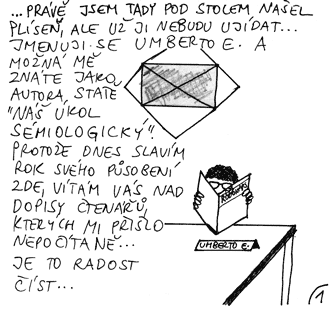 ...PRÁVĚ JSEM TADY POD STOLEM NAŠEL
PLÍSEŇ, ALE UŽ JI NEBUDU UJÍDAT...
JMENUJI SE UMBERTO E. A
MOŽNÁ MĚ
ZNÁTE JAKO
AUTORA STATĚ
"NÁŠ ÚKOL
SÉMIOLOGICKÝ".
PROTOŽE DNES SLAVÍM
ROK SVÉHO PŮSOBENÍ
ZDE, VÍTÁM VÁS NAD
DOPISY ČTENÁŘŮ,
KTERÝCH MI PŘIŠLO
NEPOČÍTANĚ...
JE TO RADOST
ČÍST...
UMBERTO E.
1